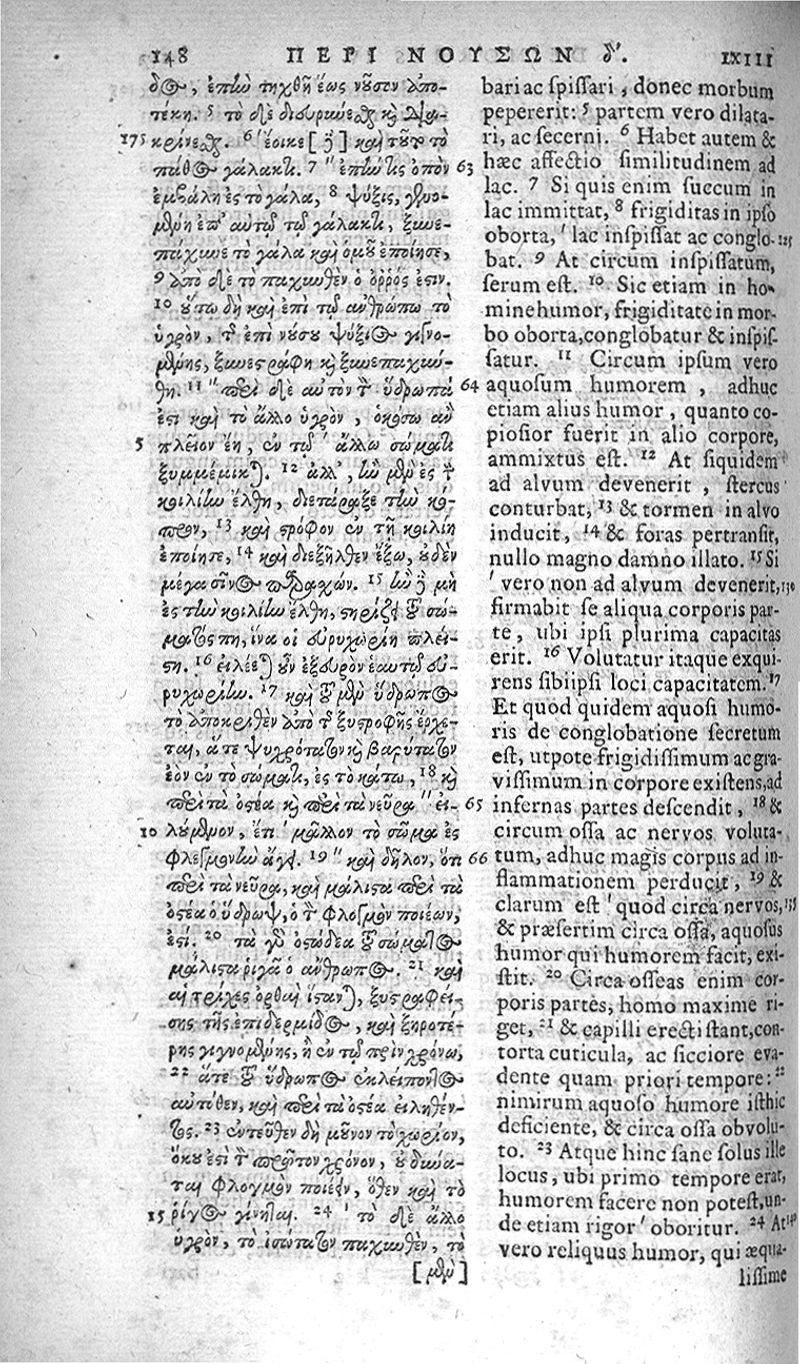 148 ΠΕΡΙ ΝΟΥΣΩΝ δ'. LXIII
δος, ἐπὴν τηχθῇ ἕως νοῦσον ἀπο-
τέκῃ. 5 τὸ δὲ
175 κρίνεται. 6 ἔοικε [δὲ] καὶ τοῦτο τὸ
πάθος γάλακτι. 7 " ἐπὴν τις ὀπὸν 63
ἐμβάλῃ ἐς τὸ γάλα, 8 ψύξις, γενο-
μένη ἐπ' αὐτῷ τῷ γάλακτι, ξυνε-
πάχυνε τὸ γάλα καὶ ὁμοῦ ἐποίησε,
9 ἀπὸ δὲ τὸ παχυθὲν ὁ ὀῤῥός ἐστιν.
10 οὕτω δὴ καὶ ἐπὶ τῷ ἀνθρώπῳ τὸ
ὑγρὸν, τῆς ἐπὶ νούσου ψύξιος γινο-
μένης, ξυνεστράφη καὶ ξυνεπαχύν-
θη. 11 " περὶ δὲ αὐτὸν τὸν ὕδρωπά 64
ἐστι καὶ τὸ ἄλλο ὑγρὸν, ὁκόσῳ ἂν
5 πλεῖον ἔῃ, ἐν τῷ ' ἄλλῳ σώματι
ξυμμέμικται. 12 ἀλλ', ἢν μὲν ἐς τὴν
κοιλίην ἔλθῃ, διετάραξε τὴν κό-
προν, 13 καὶ στρόφον ἐν τῇ κοιλίῃ
ἐποίησε, 14 καὶ διεξῆλθεν ἔξω, οὐδὲν
μέγα σίνος παρασχών. 15 ἢν δὲ μὴ
ἐς τὴν κοιλίην ἔλθῃ, στηρίζει τοῦ σώ-
ματός πη, ἵνα οἱ εὐρυχωρίη πλεί-
στη. 16 εἰλέεται οὖν ἐξευρὸν ἑαυτῷ εὐ-
ρυχωρίην. 17 καὶ τοῦ μὲν ὕδρωπος
τὸ ἀποκριθὲν ἀπὸ τῆς ξυστροφῆς ἔρχε-
ται, ἅτε ψυχρότατον καὶ βαρύτατον
ἐὸν ἐν τὸ σώματι, ἐς τὸ κάτω, 18 καὶ
περὶ τὰ ὀστέα καὶ περὶ τὰ νεῦρα " εἰ- 65
10 λούμενον, ἔτι ' μᾶλλον τὸ σῶμα ἐς
φλεγμονὴν ἄγει. 19 " καὶ δῆλον, ὅτι 66
περὶ τὰ νεῦρα, καὶ μάλιστα περὶ τὰ
ὀστέα ὁ ὕδρωψ, ὁ τὸν φλογμὸν ποιέων,
ἐστί. 20 τὰ γὰρ ὀστώδεα τοῦ σώματος
μάλιστα ῥιγᾷ ὁ ἄνθρωπος. 21 καὶ
αἱ τρίχες ὀρθαὶ ἵστανται, ξυστραφεί-
σης τῆς ἐπιδερμίδος, καὶ ξηροτέ-
ρης γιγνομένης, ἢ ἐν τῷ πρὶν χρόνῳ,
22 ἅτε τοῦ ὕδρωπος ἐκλείποντος
αὐτόθεν, καὶ περὶ τὰ ὀστέα εἰληθέν-
τος. 23 ἐντεῦθεν δὴ μοῦνον τὸ χωρίον,
ὅκου ἐστὶ τὸν πρῶτον χρόνον, οὐ δύνα-
ται φλογμὸν ποιέειν, ὅθεν καὶ τὸ
15 ῥῖγος γίνεται. 24 ' τὸ δὲ ἄλλο
ὑγρὸν, τὸ ἰσότατον παχυνθὲν, τὸ
[μὲν]
bari ac spissari, donec morbum
pepererit: 5 partem vero dilata-
ri, ac secerni. 6 Habet autem &
hæc affectio similitudinem ad
lac. 7 Si quis enim succum in
lac immittat, 8 frigiditas in ipso
oborta, ' lac inspissat ac conglo- 125
bat. 9 At circum inspissatum,
serum est. 10 Sic etiam in ho-
mine humor, frigiditate in mor-
bo oborta, conglobatur & inspis-
satur. 11 Circum ipsum vero
aquosum humorem, adhuc
etiam alius humor, quanto co-
piosior fuerit in alio corpore,
ammixtus est. 12 At siquidem
ad alvum devenerit, stercus
conturbat, 13 & tormen in alvo
inducit, 14 & foras pertransit,
nullo magno damno illato. 15 Si
' vero non ad alvum devenerit, 130
firmabit se aliqua corporis par-
te, ubi ipsi plurima capacitas
erit. 16 Volutatur itaque exqui-
rens sibiipsi loci capacitatem. 17
Et quod quidem aquosi humo-
ris de conglobatione secretum
est, utpote frigidissimum ac gra-
vissimum in corpore existens, ad
infernas partes descendit, 18 &
circum ossa ac nervos voluta-
tum, adhuc magis corpus ad in-
flammationem perducit, 19 &
clarum est ' quod circa nervos, 135
& præsertim circa ossa, aquosus
humor qui humorem facit, exi-
stit. 20 Circa osseas enim cor-
poris partes, homo maxime ri-
get, 21 & capilli erecti stant, con-
torta cuticula, ac sicciore eva-
dente quam priori tempore: 22
nimirum aquoso humore isthic
deficiente, & circa ossa obvolu-
to. 23 Atque hinc sane solus ille
locus, ubi primo tempore erat,
humorem facere non potest, un-
de etiam rigor ' oboritur. 24 At 140
vero reliquus humor, qui æqua-
lissime